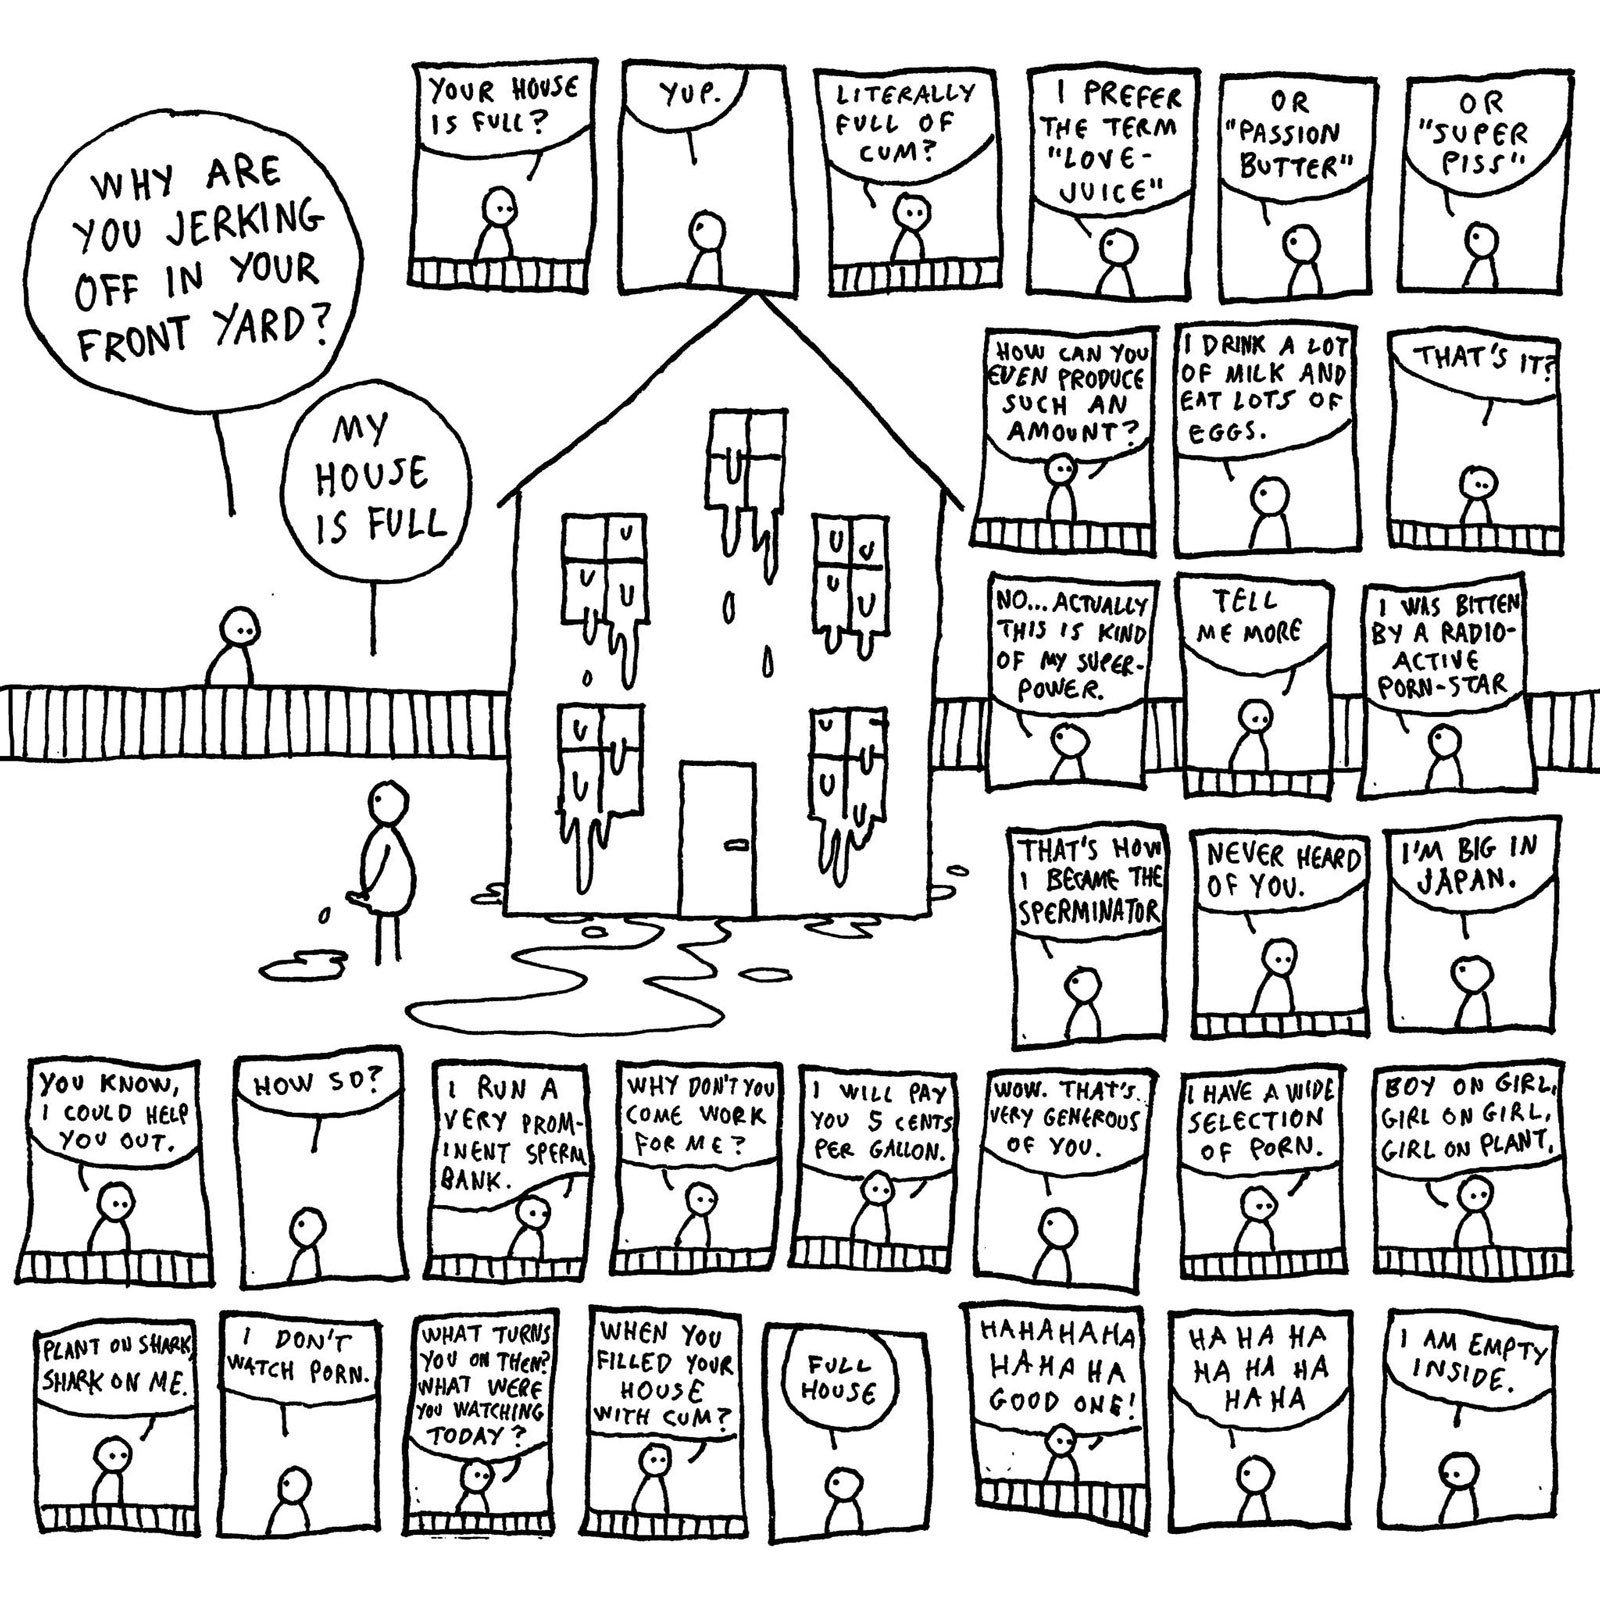 WHY ARE
YOU JERKING
OFF IN YOUR
FRONT YARD?
MY
HOUSE
IS FULL
YOUR HOUSE
IS FULL?
YUP.
LITERALLY
FULL OF
CUM?
I PREFER
THE TERM
"LOVE-
JUICE"
OR
"PASSION
BUTTER"
OR
"SUPER
PISS"
HOW CAN YOU
EVEN PRODUCE
SUCH AN
AMOUNT?
I DRINK A LOT
OF MILK AND
EAT LOTS OF
EGGS.
THAT'S IT?
NO... ACTUALLY
THIS IS KIND
OF MY SUPER-
POWER.
TELL
ME MORE
I WAS BITTEN
BY A RADIO-
ACTIVE
PORN-STAR
THAT'S HOW
I BECAME THE
SPERMINATOR
NEVER HEARD
OF YOU.
I'M BIG IN
JAPAN.
YOU KNOW,
I COULD HELP
YOU OUT.
HOW SO?
I RUN A
VERY PROM-
INENT SPERM
BANK.
WHY DON'T YOU
COME WORK
FOR ME?
I WILL PAY
YOU 5 CENTS
PER GALLON.
WOW. THAT'S
VERY GENEROUS
OF YOU.
I HAVE A WIDE
SELECTION
OF PORN.
BOY ON GIRL,
GIRL ON GIRL,
GIRL ON PLANT,
PLANT ON SHARK,
SHARK ON ME.
I DON'T
WATCH PORN.
WHAT TURNS
YOU ON THEN?
WHAT WERE
YOU WATCHING
TODAY?
WHEN YOU
FILLED YOUR
HOUSE
WITH CUM?
FULL
HOUSE
HAHAHAHA
HAHAHA
GOOD ONE!
HA HA HA
HA HA HA
HA HA
I AM EMPTY
INSIDE.